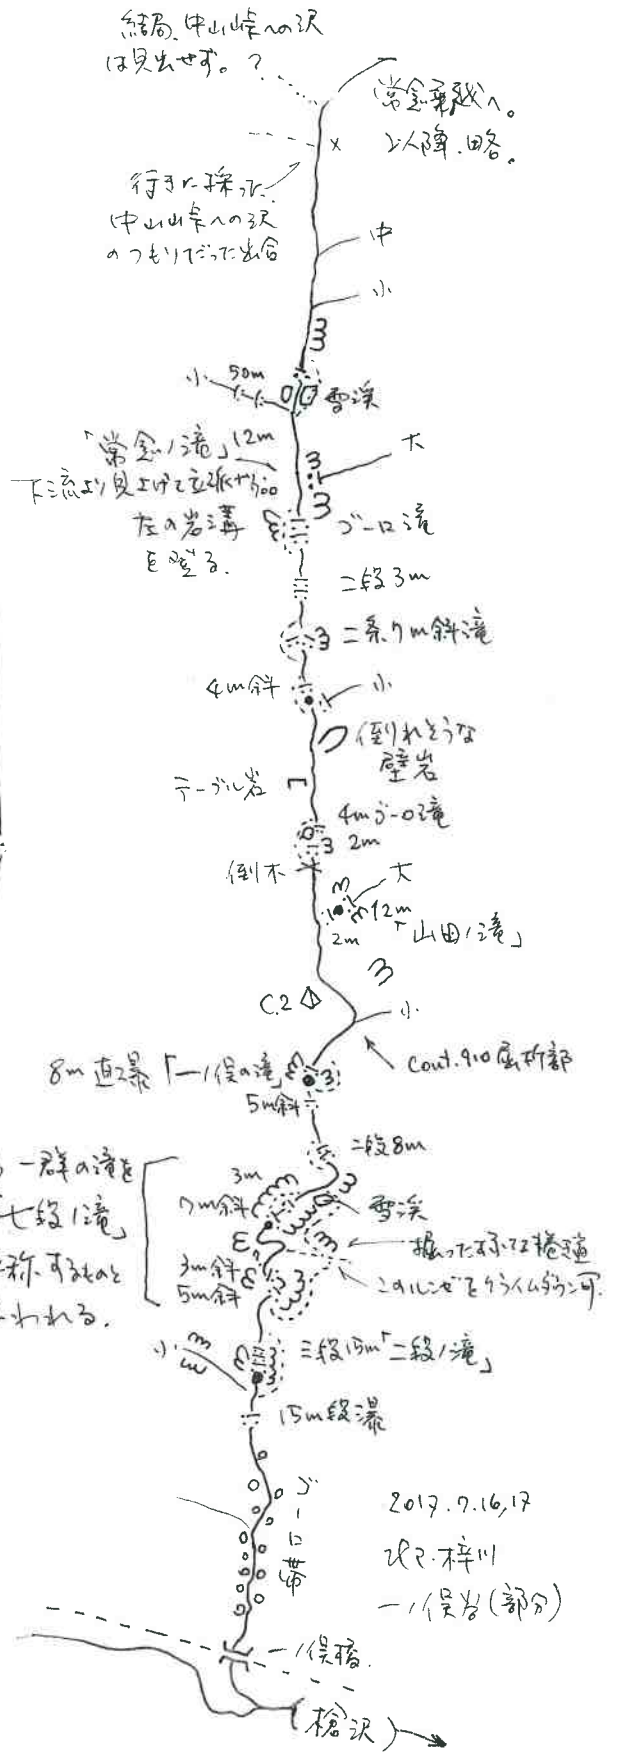 結局、中山峠への沢
は見出せず。?
常念乗越へ。
以降、略。
行きに採った
中山峠への沢
のつもりだった出合
中
小
小
50m
雪渓
「常念ノ滝」12m
大
下流より見上げて
左の岩溝
を登る。
ゴーロ滝
二段3m
二条7m斜滝
4m斜
小
倒れそうな
壁岩
テーブル岩
4mゴーロ滝
2m
倒木
大
12m
2m
「山田ノ滝」
C.2
小
Cont.910屈折部
8m直瀑「一ノ俣の滝」
5m斜
二段8m
一群の滝を
七段ノ滝」
称するものと
われる。
3m
7m斜
雪渓
3m斜
5m斜
このルンゼをクライムダウン可.
小
三段15m「二段ノ滝」
15m段瀑
ゴーロ帯
2017.7.16,17
梓川
一ノ俣谷(部分)
一ノ俣橋.
(槍沢)